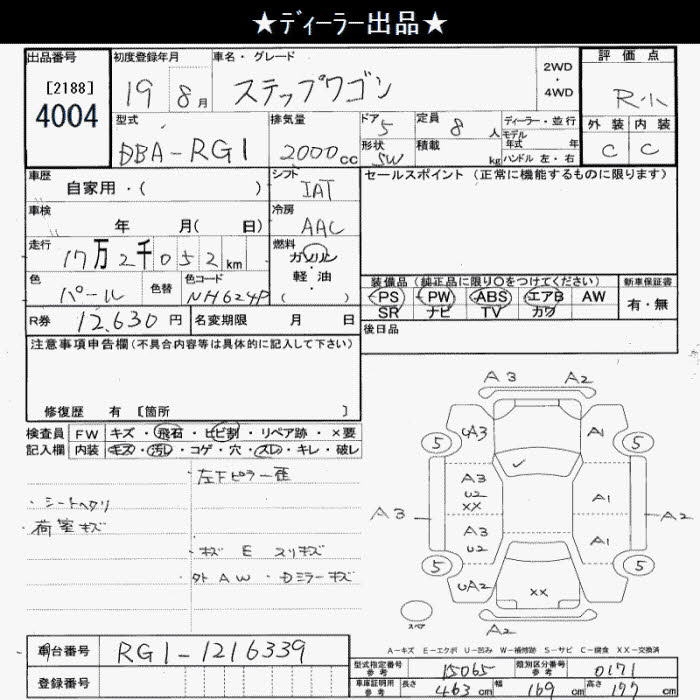 ★ディーラー出品★
出品番号
[2188]
4004
初度登録年月
19 8月
車名・グレード
ステップワゴン
2WD
・
4WD
評価点
R小
外装 内装
C C
型式
DBA-RG1
排気量
2000cc
ドア 5
形状 SW
定員 8 人
積載 kg
ディーラー・並行
モデル
年式 年
ハンドル 左・右
車歴
自家用・( )
シフト
IAT
セールスポイント(正常に機能するものに限ります)
車検
年 月( 日)
冷房
AAC
走行
17万2千052km
燃料
ガソリン
・
軽油
( )
色
パール
色替
色コード
NH624P
装備品(純正品に限り○をつけてください)
PS PW ABS エアB AW
SR ナビ TV カワ
新車保証書
有・無
R券 12,630円
名変期限 月 日
後日品
注意事項申告欄(不具合内容等は具体的に記入して下さい)
修復歴 有 〔箇所 〕
検査員
記入欄
FW キズ・飛石・ヒビ割・リペア跡・×要
内装 キズ・汚れ・コゲ・穴・スレ・キレ・破レ
・左下ピラー歪
・シートヘタリ
・荷室キズ
・キズ E スリキズ
・外AW・Dミラーキズ
A3 A2
5 UA3 A1 5
A3
U2
XX
A1
A3 A2
A3
U2
A1
5 UA2 XX 5
スペア
A2
A-キズ E-エクボ U-凹み W-補修跡 S-サビ C-腐食 XX-交換済
車台番号 RG1-1216339
登録番号
型式指定番号
参考
15065
類別区分番号
参考
0171
車庫証明用
参考
長さ 463cm 幅 169cm 高さ 177cm